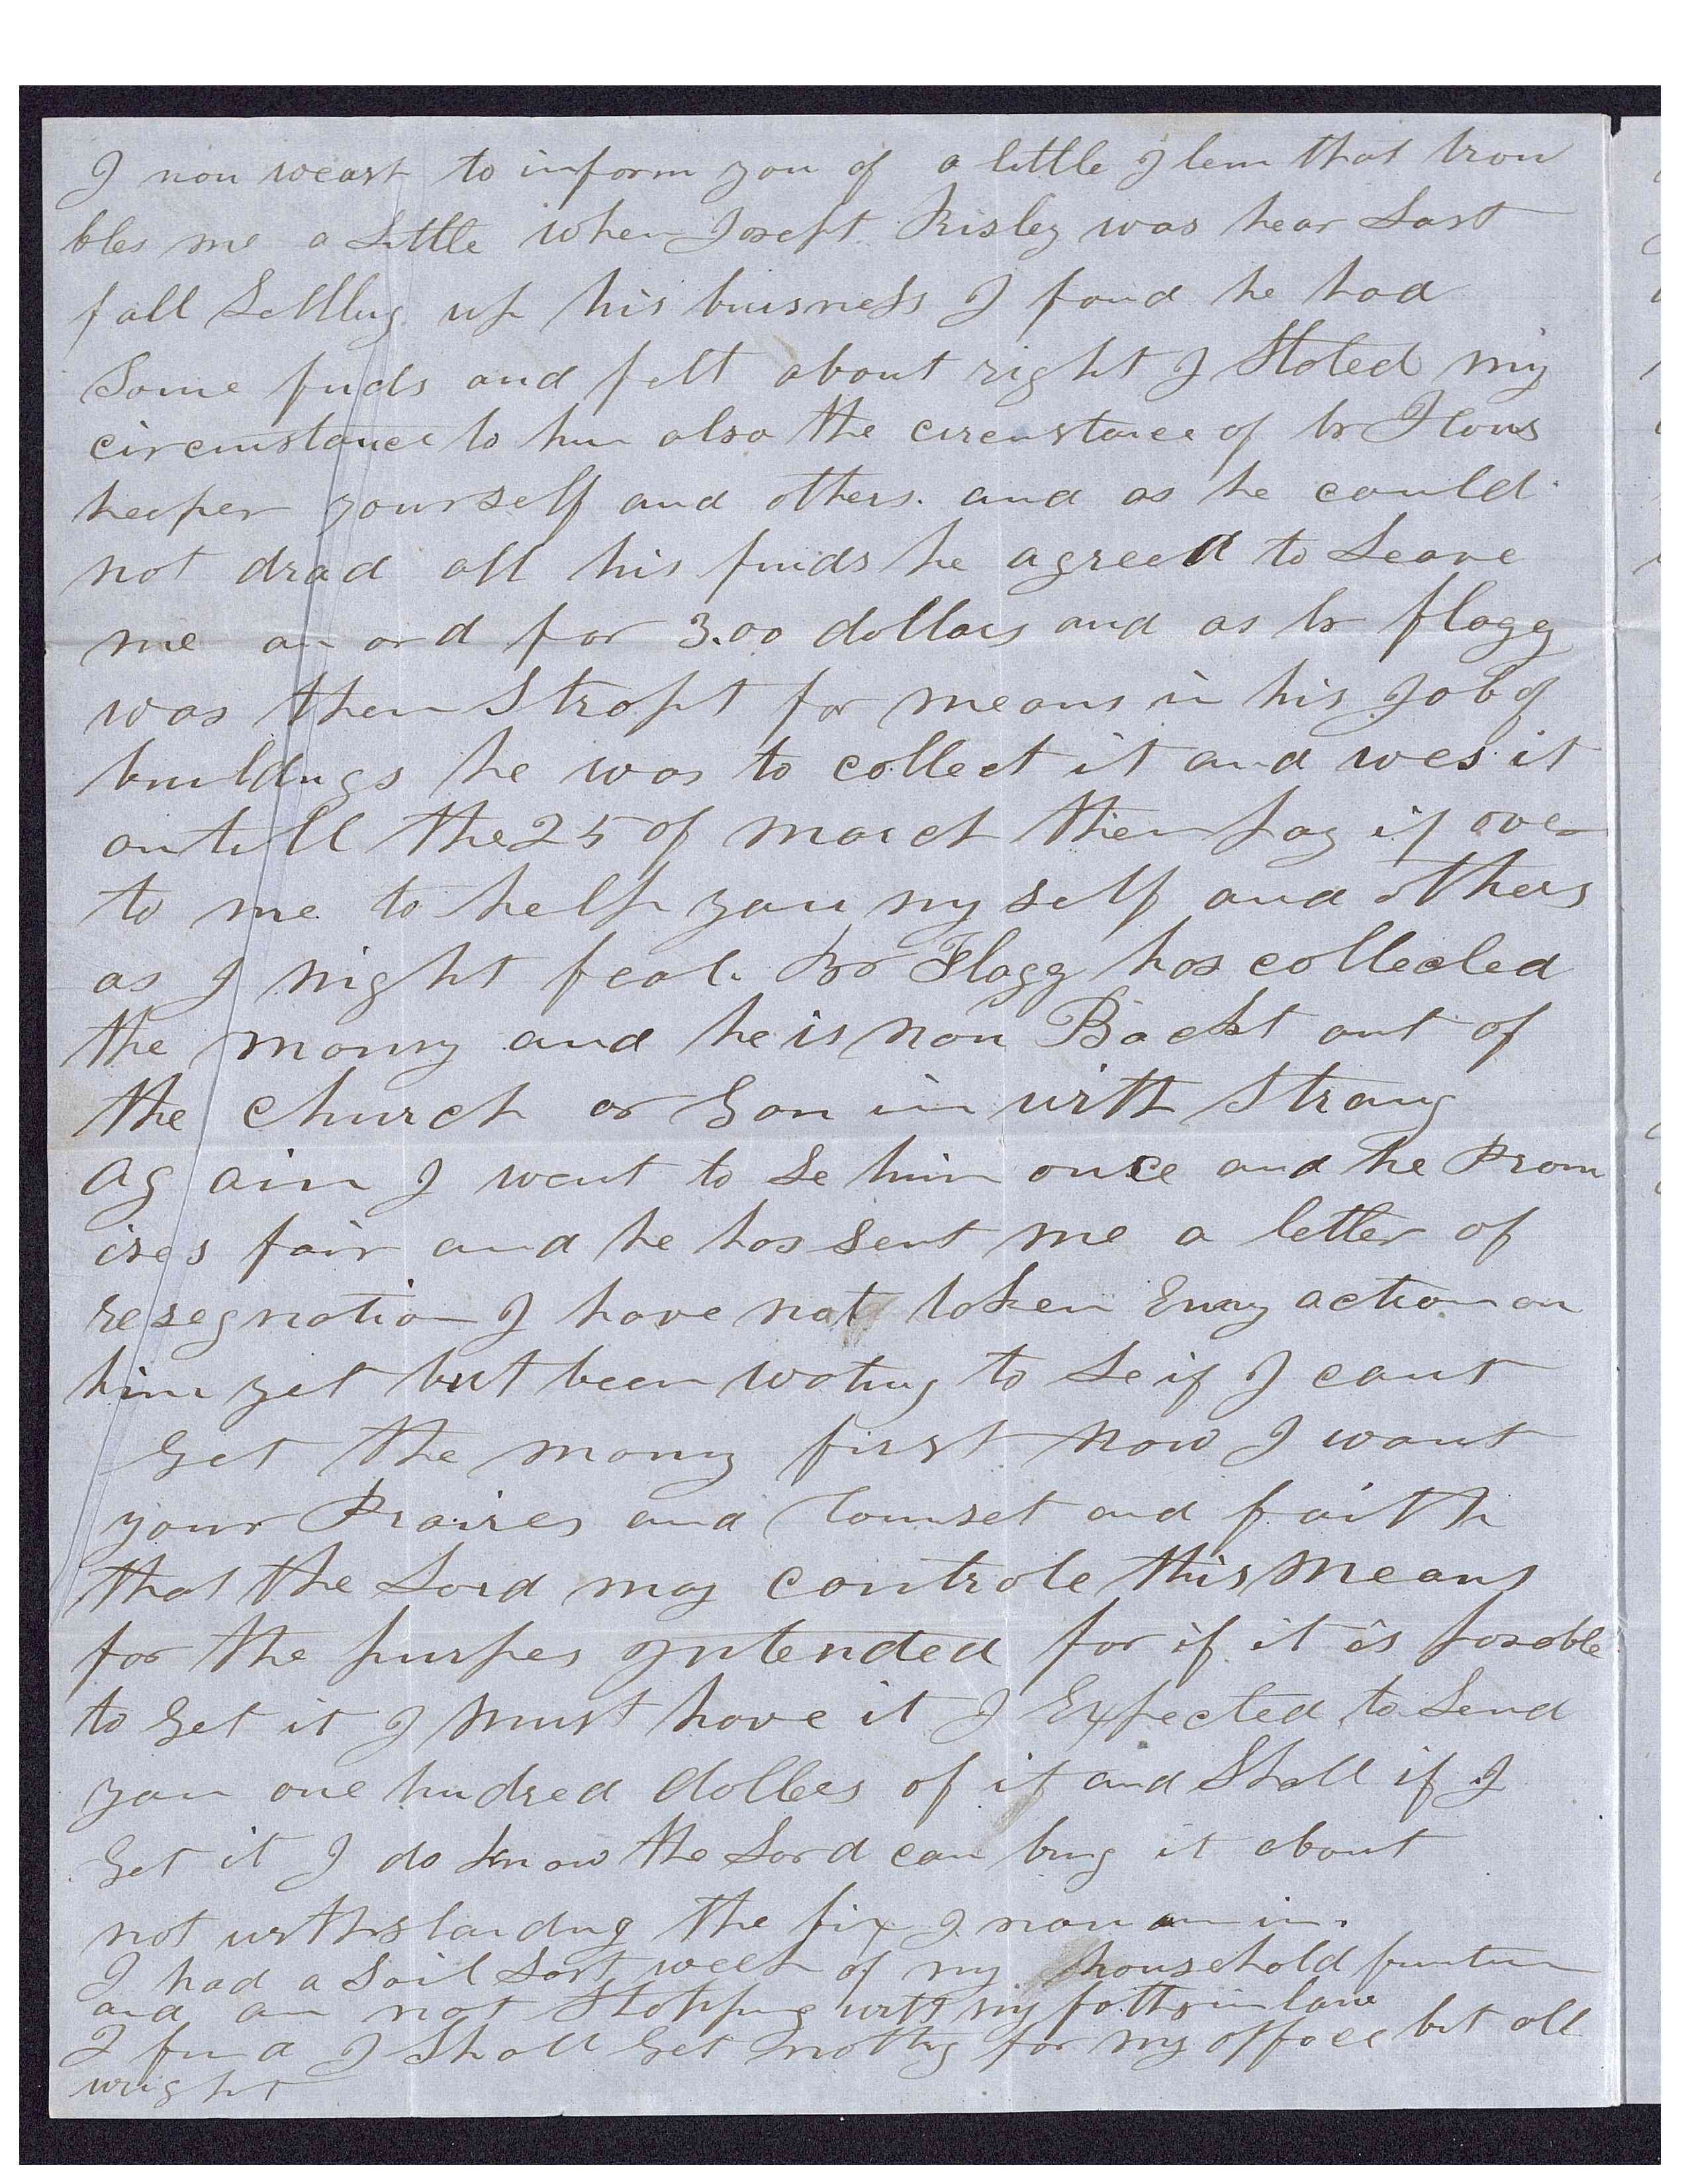 I now want to inform you of a little Item that trou
bles me a little when Joseph Risley was hear Last
fall Settling up his buisness I found he had
Some funds and felt about right I Stated my
circumstance to him also the circumstance of br
keeper yourself and others. and as he could
not drad all his funds he agreed to Leave
me an ord for 3.00 dollars and as br flagg
was then Stropt for means in his Job of
buildings he was to collect it and wes it
untill the 25 of march then pay it over
to me to help you my self and others
as I might feal. br Flagg has collected
the mony and he is now Backt out of
the church or Gon in with Strang
Ag ain I went to Se him once and he Prom
ises fair and he has Sent me a letter of
resegnation I have not taken Enny action on
him yet but been wating to Se if I cant
Get the mony first now I want
your Praires and Counsel and faith
that the Lord may controle this means
for the purpes Intended for if it is posable
to Get it I must have it I Expected to Send
you one hundred dollers of it and Shall if I
Get it I do know the Lord can bring it about
not withstanding the fix I now am in.
I had a Sail Last week of my household furniture
and am not Stopping with my father in law
I find I Shall Get nothing for my office but all
wright